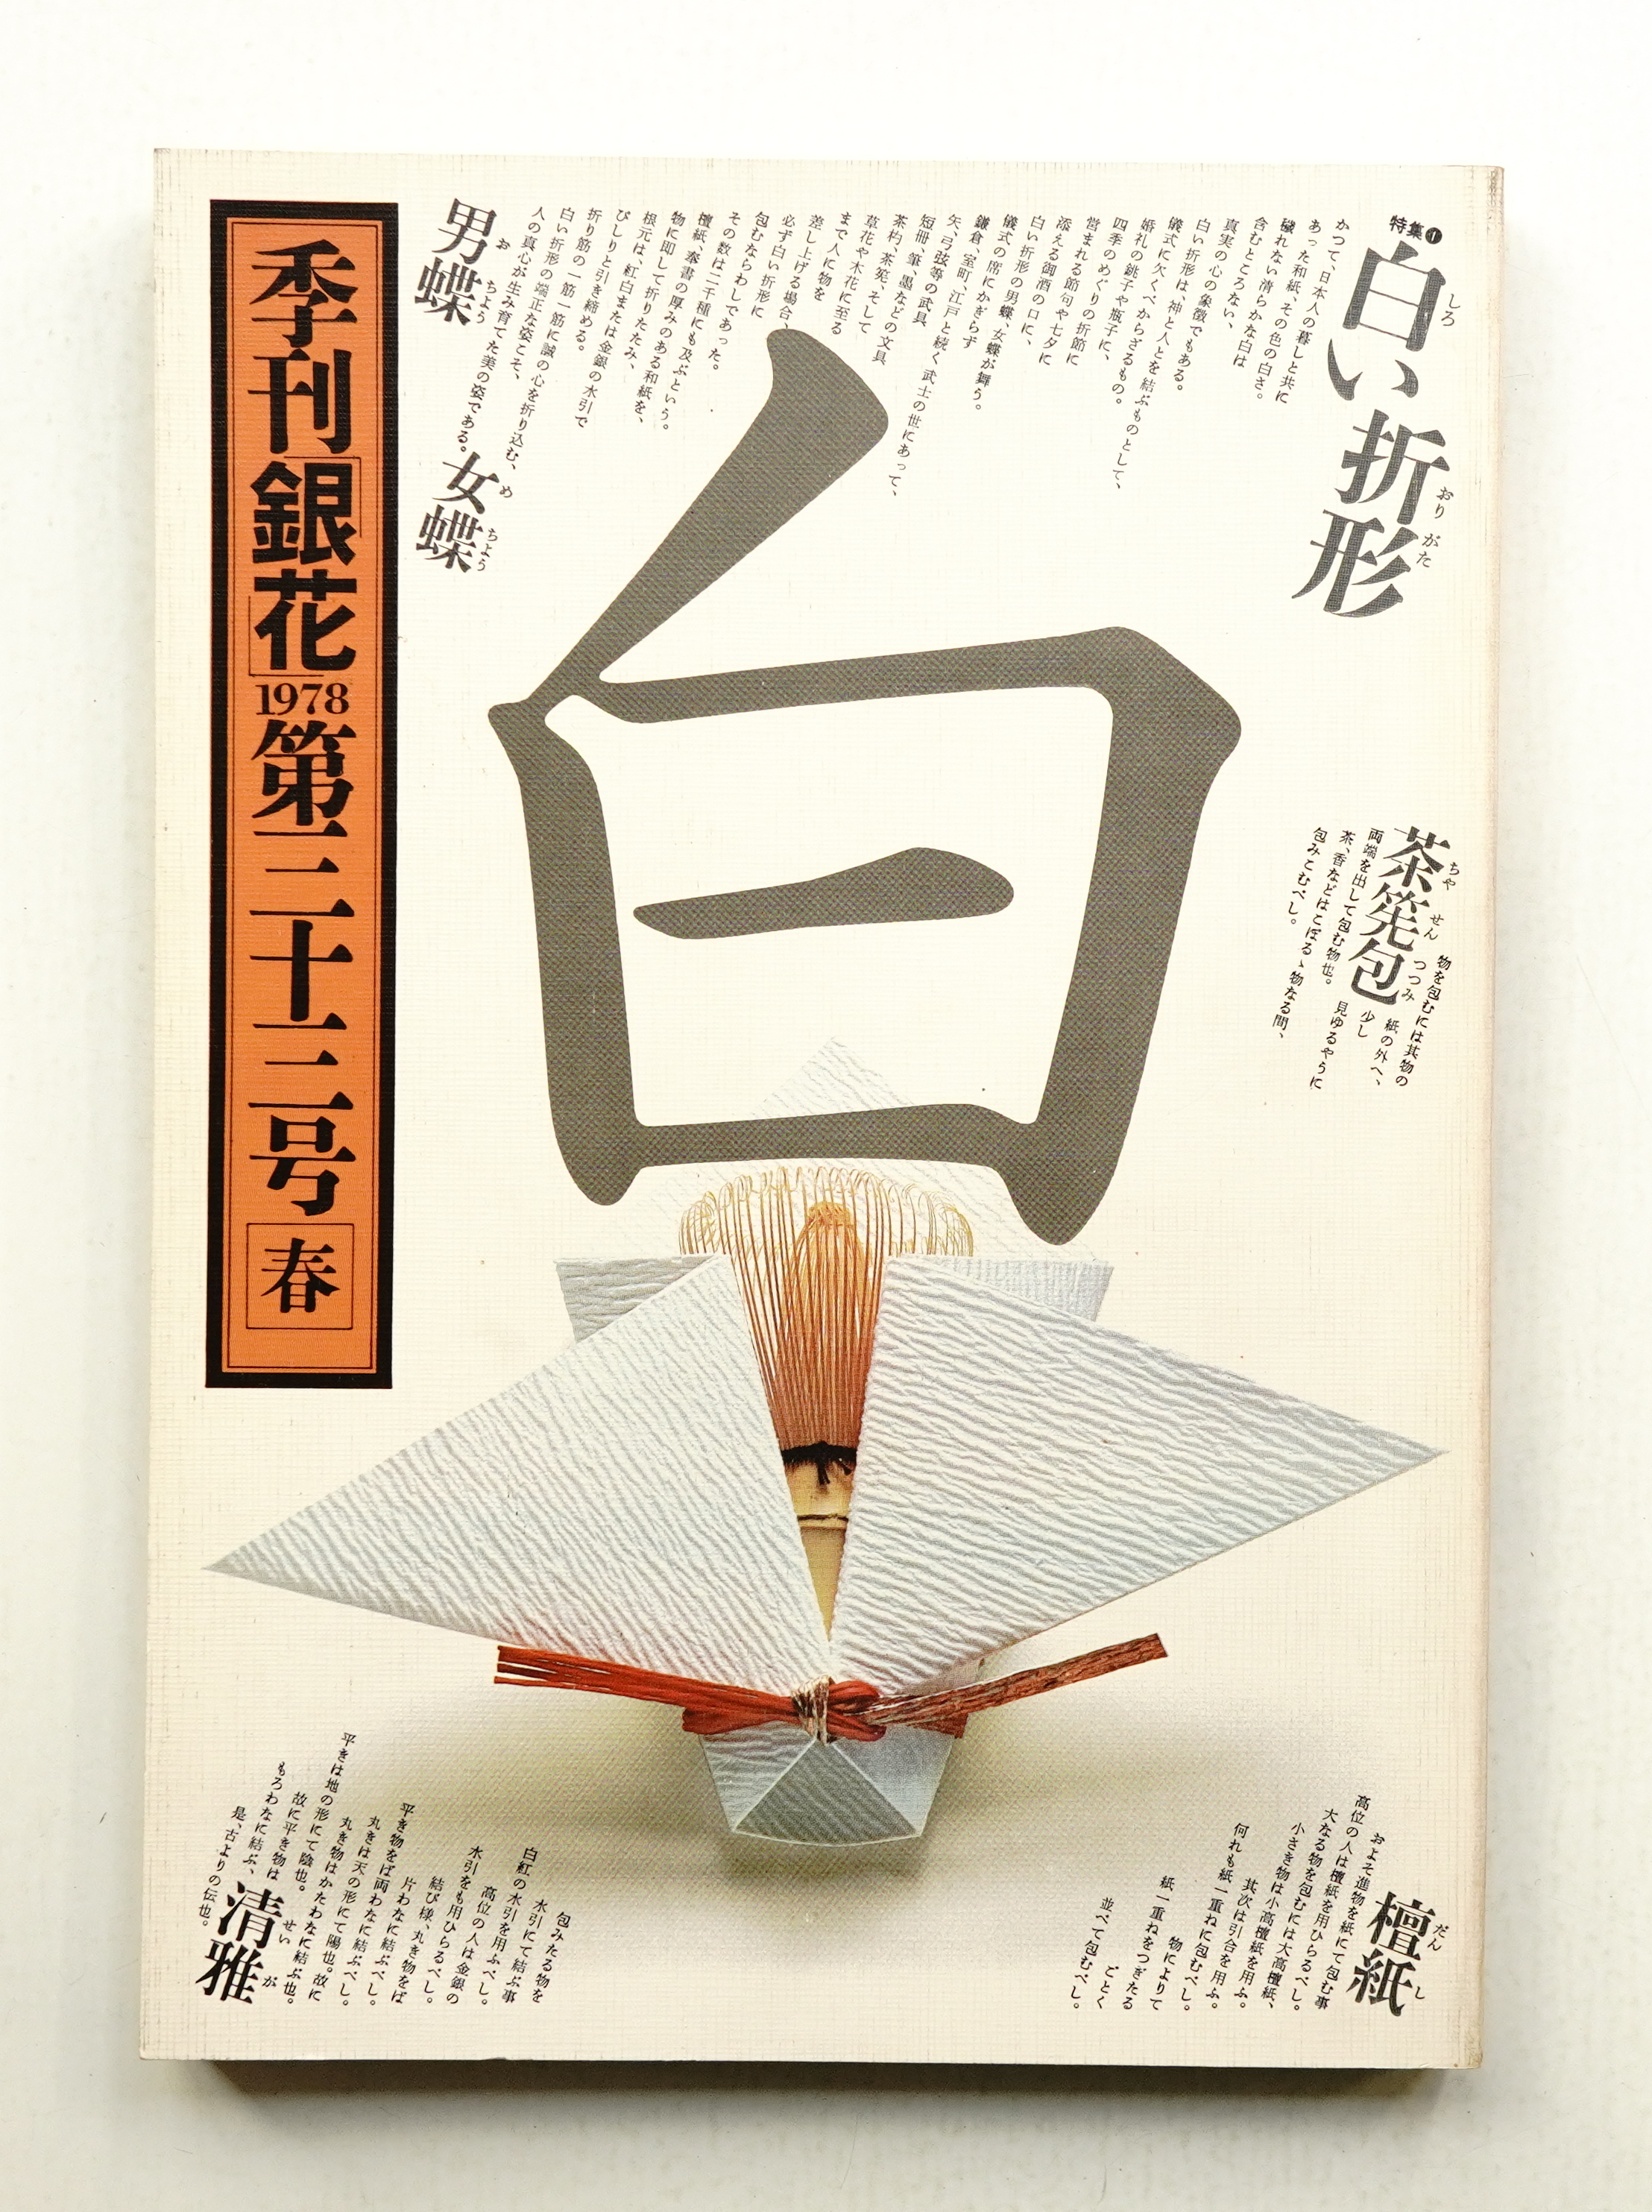 特集1
白い折形
しろ
おり
がた
かつて、日本人の暮しと共に
あった和紙、その色の白さ。
穢れない清らかな白は
含むところない、
真実の心の象徴でもある。
白い折形は、神と人とを結ぶものとして、
儀式に欠くべからざるもの。
婚礼の銚子や瓶子に、
四季のめぐりの折節に
営まれる節句や七夕に
添える御酒の口に、
白い折形の男蝶、女蝶が舞う。
儀式の席にかぎらず
鎌倉、室町、江戸と続く武士の世にあって、
矢、弓弦等の武具
短冊、筆、墨などの文具
茶杓、茶筅、そして
草花や木花に至る
まで人に物を
差し上げる場合、
必ず白い折形に
包むならわしであった。
その数は二千種にも及ぶという。
檀紙、奉書の厚みのある和紙を、
物に即して折りたたみ、
根元は、紅白または金銀の水引で
びしりと引き締める。
折り筋の一筋一筋に誠の心を折り込む、
白い折形の端正な姿こそ、
人の真心が生み育てた美の姿である。
男蝶
お
ちょう
女蝶
め
ちょう
季刊「銀花」1978第三十三号 春
白
茶筅包
ちゃ
せん
つつみ
物を包むには其物の
紙の外へ、
少し
両端を出して包む物也。
見ゆるやうに
茶、香などはこぼるゝ物なる間、
包みこむべし。
檀紙
だん
し
およそ進物を紙にて包む事
高位の人は檀紙を用ひらるべし。
大なる物を包むには大高檀紙、
小さき物は小高檀紙を用ふ。
其次は引合を用ふ。
何れも紙一重ねに包むべし。
物によりて
紙一重ねをつぎたる
ごとく
並べて包むべし。
包みたる物を
水引にて結ぶ事
白紅の水引を用ふべし。
高位の人は金銀の
水引をも用ひらるべし。
結び様、丸き物をば
片わなに結ぶべし。
平き物をば両わなに結ぶべし。
丸きは天の形にて陽也。故に
丸き物はかたわなに結ぶ也。
平きは地の形にて陰也。
故に平き物は
もろわなに結ぶ、
是、古よりの伝也。
清雅
せい
が